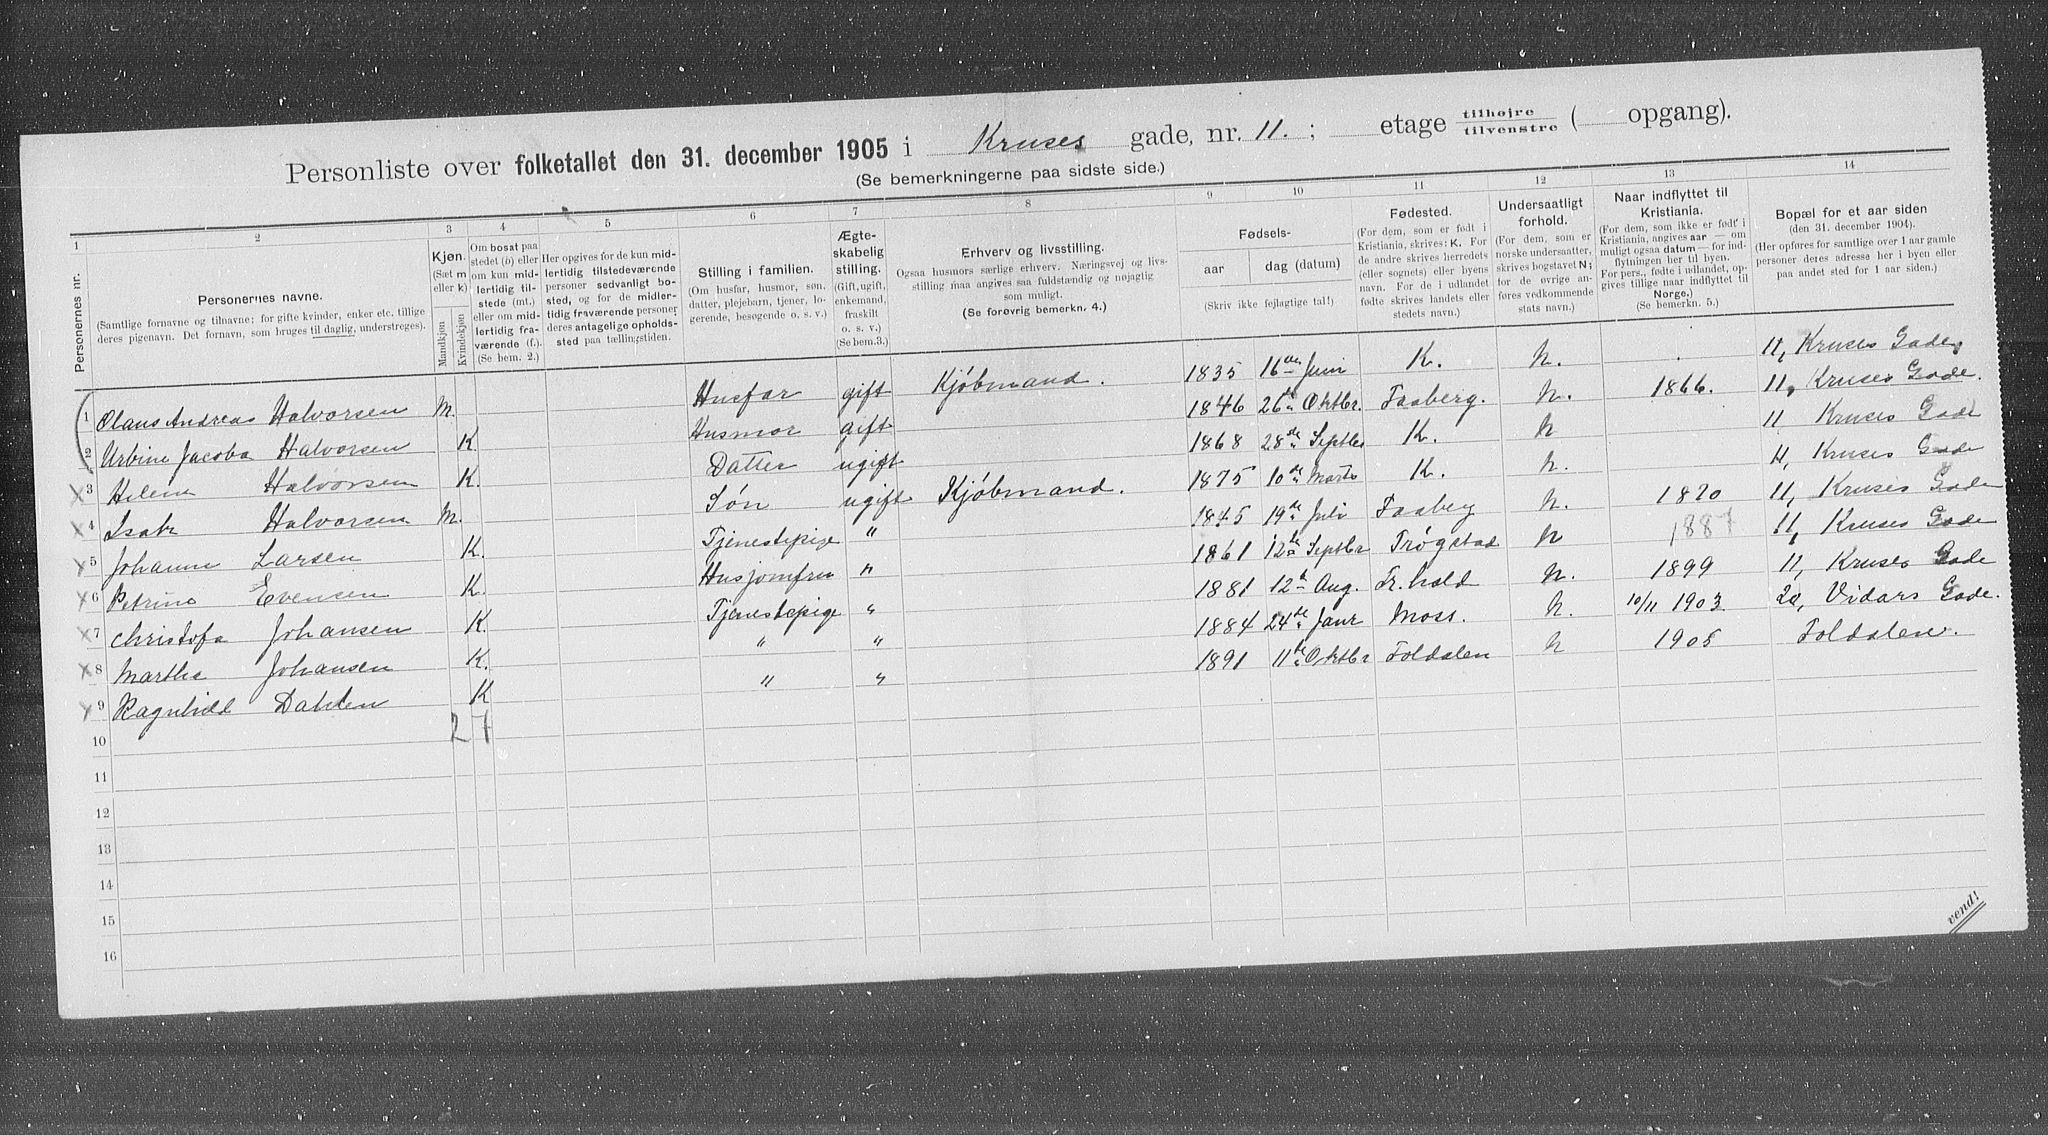 Personliste over folketallet den 31. december 1905 i Kruses gade, nr. 11. ; etage tilhøjre tilvenstre ( opgang).
(Se bemerkningerne paa sidste side.)
1 2 3 4 5 6 7 8 9 10 11 12 13 14
Personernes nr.
Personernes navne.
(Samtlige fornavne og tilnavne; for gifte kvinder, enker etc. tillige
deres pigenavn. Det fornavn, som bruges til daglig, understreges).
Kjøn.
(Sæt m
eller k)
Mandkjøn
Kvindekjøn
Om bosat paa
stedet (b) eller
om kun mid-
lertidig til-
stede (mt.)
eller om mid-
lertidig fra-
værende (f.)
(Se bem. 2.)
Her opgives for de kun mid-
lertidig tilstedeværende
personer sedvanligt bo-
sted, og for de midler-
tidig fraværende personer
deres antagelige opholds-
sted paa tællingstiden.
Stilling i familien.
(Om husfar, husmor, søn,
datter, plejebarn, tjener, lo-
gerende, besøgende o. s. v.)
Ægte-
skabelig
stilling.
(Gift, ugift,
enkemand,
fraskilt
o. s. v.)
(Se bem.3.)
Erhverv og livsstilling.
Ogsaa husmors særlige erhverv. Næringsvej og livs-
stilling maa angives saa fuldstændig og nøjagtig
som muligt.
(Se forøvrig bemerkn. 4.)
Fødsels-
aar dag (datum)
(Skriv ikke fejlagtige tal!)
Fødested.
(For dem, som er født i
Kristiania, skrives: K. For
de andre skrives herredets
(eller sognets) eller byens
navn. For de i udlandet
fødte skrives landets eller
stedets navn.)
Undersaatligt
forhold.
(For dem, som er
norske undersaatter,
skrives bogstavet N;
for de øvrige an-
føres vedkommende
stats navn.)
Naar indflyttet til
Kristiania.
(For dem, som ikke er født i
Kristiania, angives aar — om
muligt ogsaa datum — for ind-
flytningen her til byen.
For pers., fødte i udlandet, op-
gives tillige naar indflyttet til
Norge.)
(Se bemerkn. 5.)
Bopæl for et aar siden
(den 31. december 1904).
(Her opføres for samtlige over 1 aar gamle
personer deres adresse her i byen eller
paa andet sted for 1 aar siden.)
1 Olaus Andreas Halvorsen M. Husfar gift Kjøbmand. 1835 16de Juni K. N. 11, Kruses Gade,
2 Urbine Jacoba Halvorsen K. Husmor gift 1846 26de Oktbr. Faaberg. N. 1866. 11, Kruses Gade.
3 Helene Halvorsen K. Datter ugift 1868 28de Septbr K. N 11 Kruses Gade
4 Isak Halvorsen M. Søn ugift Kjøbmand. 1875 10de Marts K. N. 11, Kruses Gade
5 Johanne Larsen K. Tjenestepige " 1845 19de Juli Faaberg N. 1870 11, Kruses Gade
6 Petrine Evensen K. Husjomfru " 1861 12te Septbr Trøgstad N 1887 11, Kruses Gade
7 Christofa Johansen K. Tjenestepige " 1881 12te Aug. Fr.hald N. 1899 11, Kruses Gade
8 Martha Johansen K. " " 1884 24de Janr Moss. N. 10/11 1903 20, Vidars Gade.
9 Ragnhild Dahlen K " " 1891 11te Oktbr Foldalen N 1905 Foldalen.
10 2 7
11
12
13
14
15
16
vend!